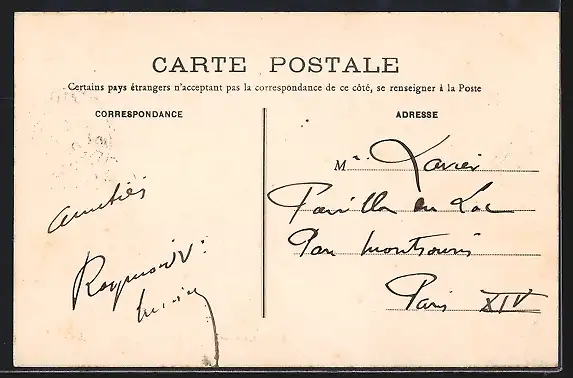 CARTE POSTALE
Certains pays étrangers n'acceptant pas la correspondance de ce côté, se renseigner à la Poste
CORRESPONDANCE
Amitiés
Raymond
ADRESSE
M Xavier
Pavillon du Lac
Parc Montsouris
Paris XIV